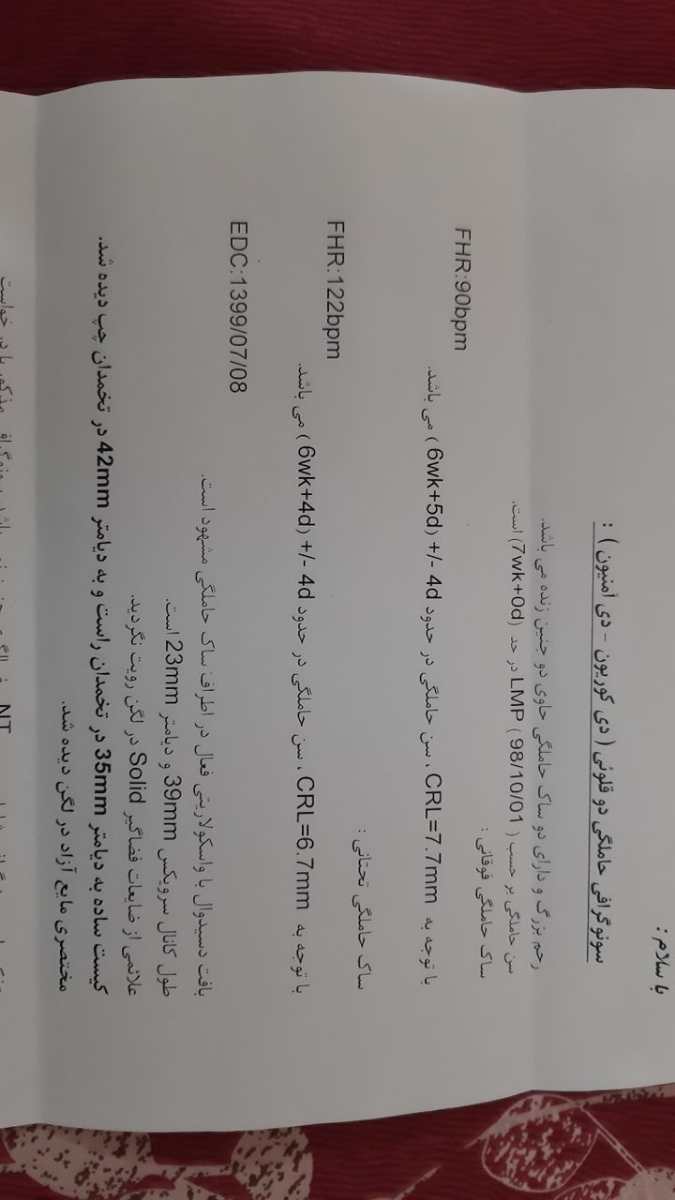 با سلام :
سونوگرافی حاملگی دو قلوئی ( دی کوریون - دی آمنیون ) :
رحم بزرگ و دارای دو ساک حاملگی حاوی دو جنین زنده می باشد.
سن حاملگی بر حسب LMP ( 98/10/01 ) در حد (7wk+0d) است.
ساک حاملگی فوقانی :
با توجه به CRL=7.7mm ، سن حاملگی در حدود 6wk+5d) +/- 4d ) می باشد.
FHR:90bpm
ساک حاملگی تحتانی :
با توجه به CRL=6.7mm ، سن حاملگی در حدود 6wk+4d) +/- 4d ) می باشد.
FHR:122bpm
بافت دسیدوال با واسکولاریتی فعال در اطراف ساک حاملگی مشهود است.
EDC:1399/07/08
طول کانال سرویکس 39mm و دیامتر 23mm است.
علائمی از ضایعات فضاگیر Solid در لگن رویت نگردید.
کیست ساده به دیامتر 35mm در تخمدان راست و به دیامتر 42mm در تخمدان چپ دیده شد.
مختصری مایع آزاد در لگن دیده شد.
NT